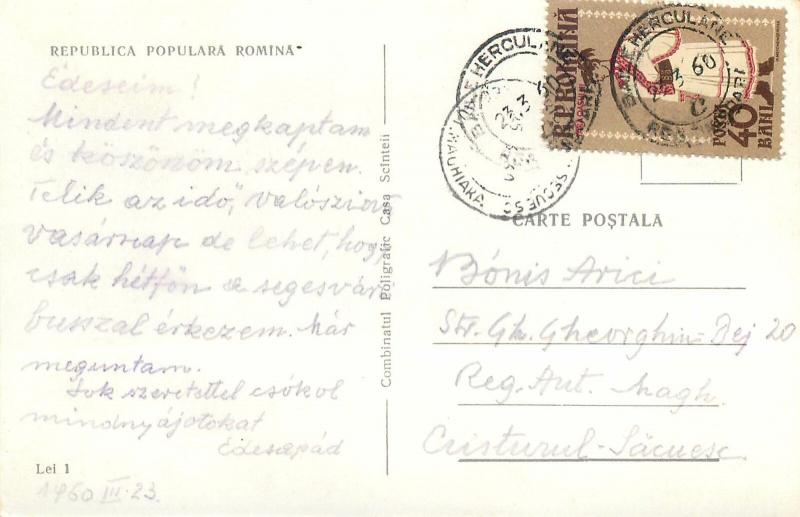 REPUBLICA POPULARĂ ROMÎNĂ
Édeseim!
Mindent megkaptam
és köszönöm szépen.
Telik az idő, valószinű
vasárnap de lehet, hogy
csak hétfőn a segesvári
busszal érkezem. Már
meguntam.
Sok szeretettel csókol
mindnyájotokat
Édesapád
Lei 1
1960 III. 23.
Combinatul Poligrafic Casa Scînteii
R.P. ROMÎNĂ
POȘTA
40 BANI
BĂILE HERCULANE
23.3 60
BĂILE HERCULANE
3 60
CARTE POȘTALĂ
Bónis Arici
Str. Gh. Gheorghiu-Dej 20
Reg. Aut. Magh.
Cristurul-Săcuesc